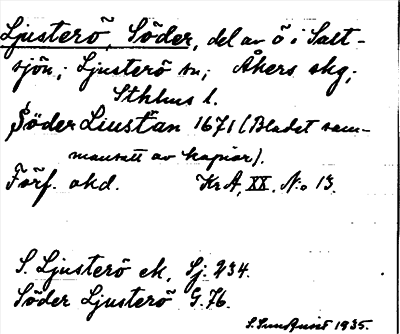 Ljusterö, Söder, del av ö i Salt-
sjön; Ljusterö sn; Åkers skg;
Sthlms l.
Söder Liustan 1671 (Bladet sam-
mansatt av kopior).
Förf. okd. Kr A, XX, No 13.
S. Ljusterö ek. Sj. 234.
Söder Ljusterö G. 76.
1935.